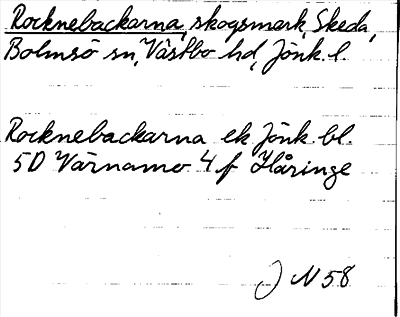 Rocknebackarna, skogsmark, Skeda,
Bolmsö sn, Västbo hd, Jönk. l.
Rocknebackarna ek Jönk. bl.
5D Värnamo 4 f Håringe
J N 58